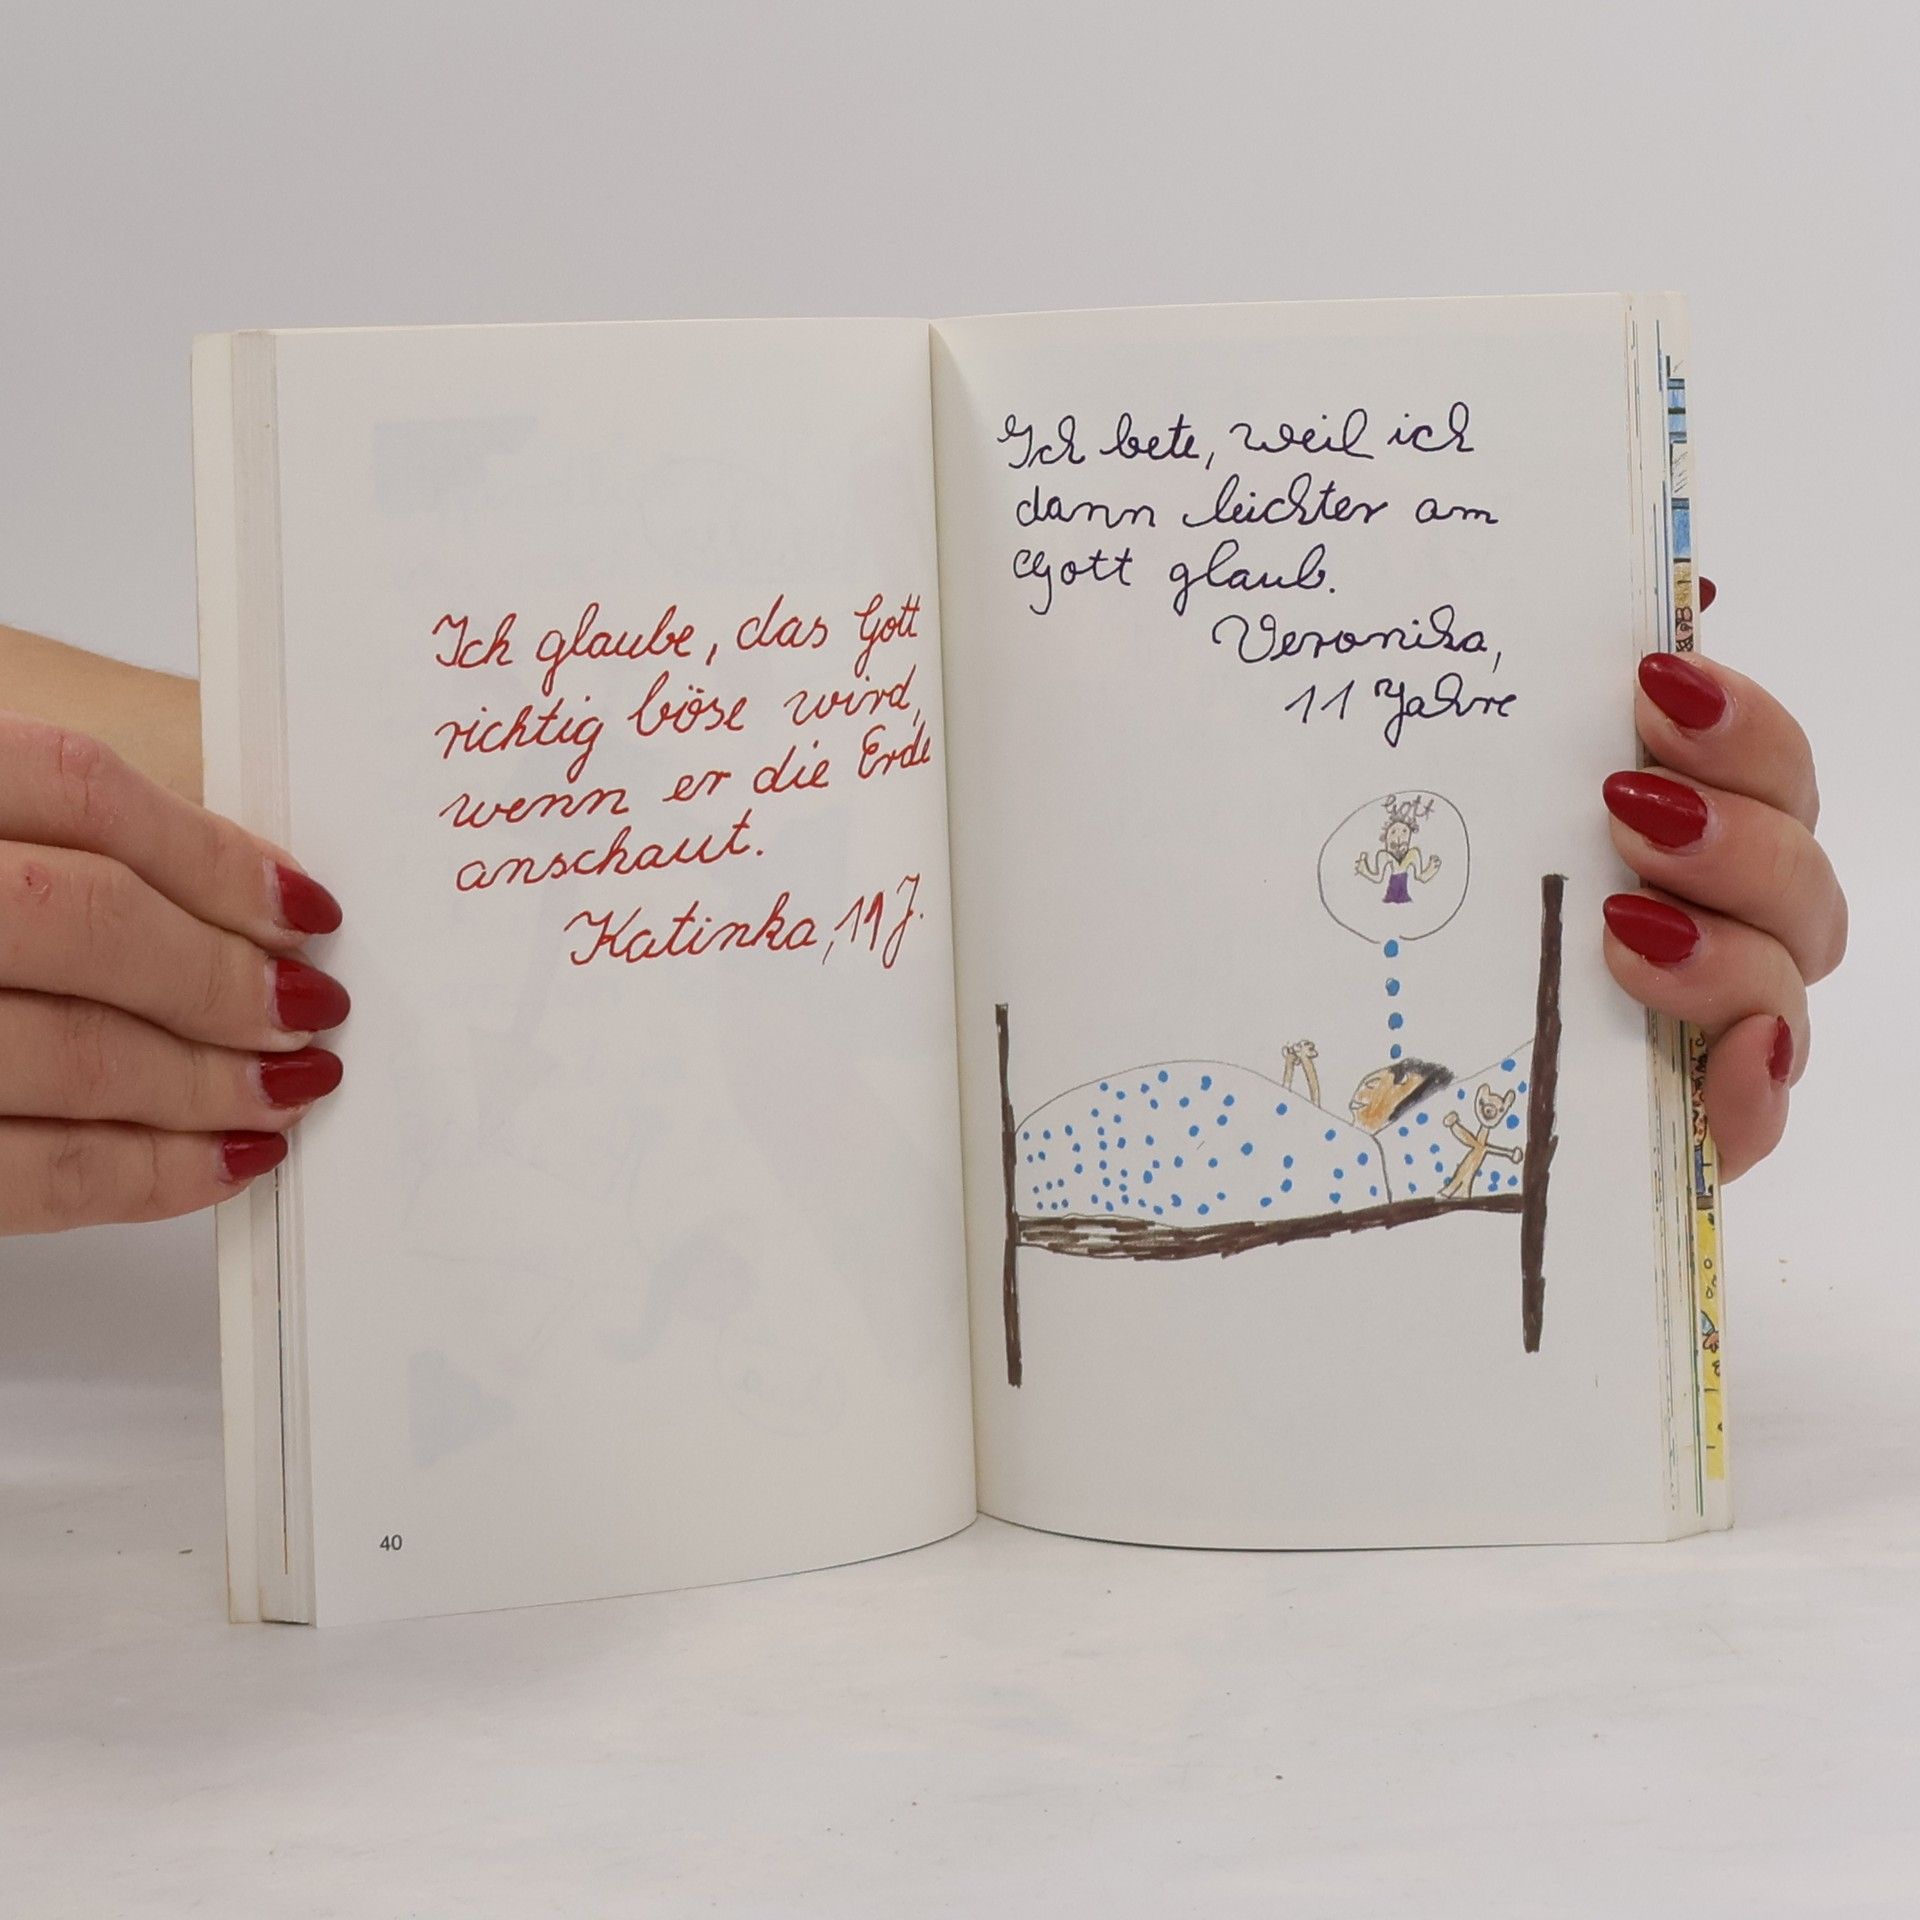 Ich glaube, das Gott
richtig böse wird,
wenn er die Erde
anschaut.
Katinka, 11 J.
40
Ich bete, weil ich
dann leichter am
Gott glaub.
Veronika,
11 Jahre
Gott